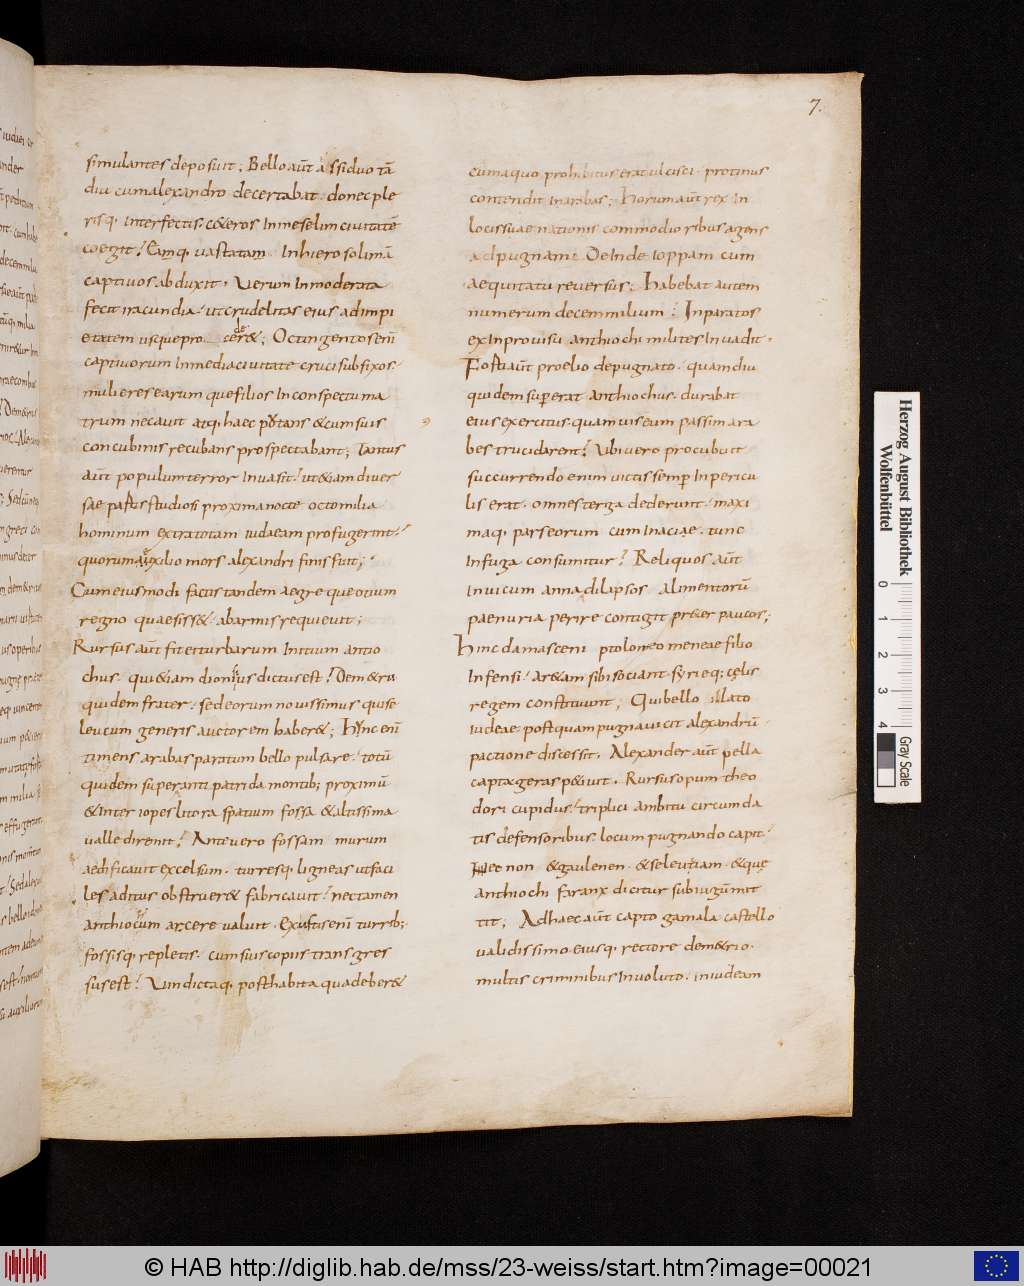 7.
simulantes deposuit; Bello aut̄ assiduo tā
diu cum alexandro decertabat · donec ple
risq· interfectis · c&eros in meselim ciuitatē
coegit; Eamq· uastatam in hierosolimā
captiuos abduxit · Verum inmoderata
fecit iracundia ut crudelitas eius ad impi
etatem usque procederet; Octingentos enī
captiuorum in media ciuitate cruci subfixos·
mulieres earum que filios in conspectu ma
trum necauit atq· haec potans & cum suis
concubinis recubans prospectabant; Tantus
aūt populum terror inuasit ut &iam diuer
sae partis studiosi proxima nocte octo milia
hominum extra totam iudaeam profugerint
quorum auxilio mors alexandri finis fuit;
Cum eiusmodi factis tandem aegre que otium
regno quaesiss& abarmis requieuit;
Rursus aūt fit ei turbarum initium antio
chus · qui &iam dionisius dictus est Dem&rii
quidem frater · sed eorum nouissimus qui se
leucum generis auctorem haber&; Hunc enī
timens arabas paratum bello pulsare totū
quidem super antipatrida montib; proximū
& inter iopes litora spatium fossa & altissima
ualle diremit; Ante uero fossam murum
aedificauit excelsum · turresq· ligneas ut faci
les aditus obstruer& fabricauit nec tamen
anthiocum arcere ualuit · Exustis enī turrib;
fossisq· repletis · cum suis copiis transgres
sus est; Vindictaq· posthabita qua deber&
cum a quo prohibitus erat ulcisci · protinus
contendit in arabas; Horum aūt rex in
locis suae nationis commodioribus agens
ad pugnam Deinde ioppam cum
aequitatu reuersus; Habebat autem
numerum decem milium; Inparatos
ex inprouisu anthiochi milites inuadit ·
Forti aūt proelio depugnato · quamdiu
quidem superat anthiochus · durabat
eius exercitus · quamuis eum passim ara
bes trucidarent; Vbi uero procubuit
succurrendo enim uictis semper in pericu
lis erat · omnes terga dederunt · maxi
maq· pars eorum cum in aciae · tunc
in fuga consumitur; Reliquos aūt
in uicum anna dilapsos alimentorū
paenuria perire contigit praeter paucos;
Hinc damasceni ptolomeo meneae filio
infensi ar&am sibi sociant · syrieq; celis
regem constituunt, Qui bello illato
iudeae postquam pugna uicit alexandrū
pactione discessit, Alexander aūt pella
capta geras p&iuit · Rursus opum theo
dori cupidus triplici ambitu circumda
tis defensoribus · locum pugnando capit
Nec non & gaulenen · & seleutiam · & quę
anthiochi faranx dicitur sub iugū mit
tit; Ad haec aūt capto gamala castello
ualidissimo · eiusq· rectore dem&rio ·
multis criminibus inuoluto · in iudeam
Herzog August Bibliothek
Wolfenbüttel
0 1 2 3 4
Gray Scale
© HAB http://diglib.hab.de/mss/23-weiss/start.htm?image=00021